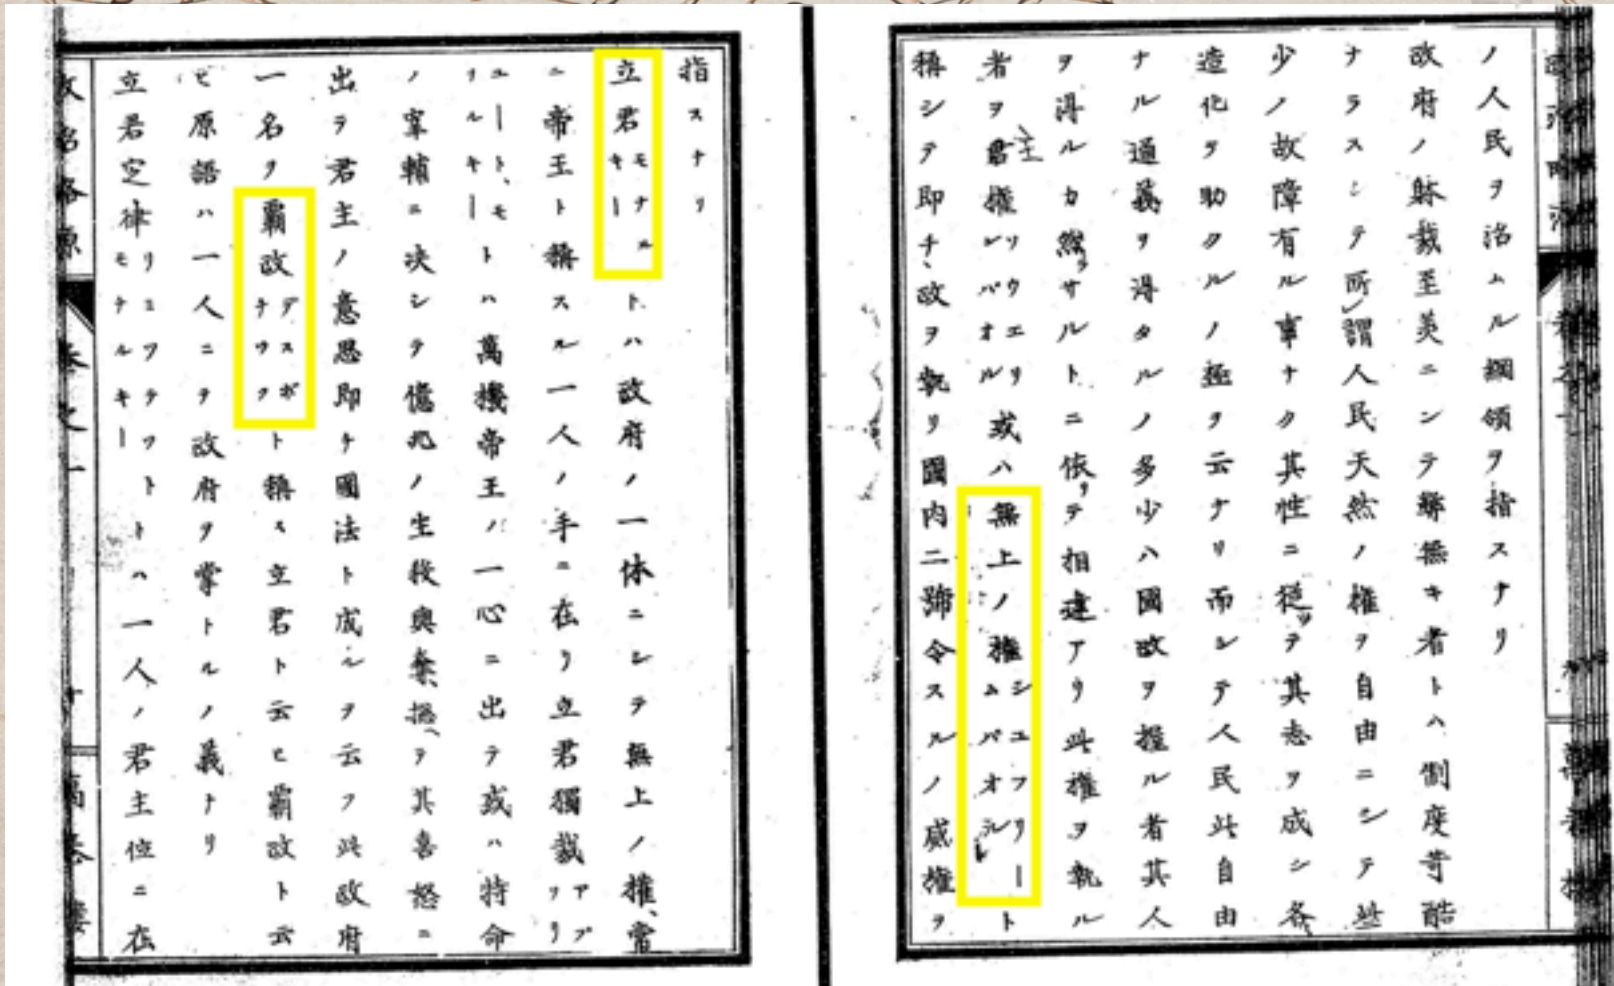 ノ人民ヲ治ムル綱領ヲ指スナリ
政府ノ躰裁至美ニシテ弊無キ者トハ制度苛酷
ナラスシテ所謂人民天然ノ權ヲ自由ニシテ些
少ノ故障有ル事ナク其性ニ從ッテ其志ヲ成シ各
造化ヲ助クルノ極ヲ云ナリ而シテ人民此自由
ナル通義ヲ得タルノ多少ハ國政ヲ握ル者其人
ヲ得ルカ然ラサルトニ依リテ相違アリ此權ヲ執ル
者ヲ君主權ソウエリンパオル或ハ無上ノ權シユフリームパオルト
稱シテ即チ政ヲ執リ國内ニ號令スルノ威權ヲ
指スナリ
立君モナルキートハ政府ノ一体ニシテ無上ノ權常
ニ帝王ト稱スル一人ノ手ニ在リ立君獨裁アブソリ
ユート、モナルキートハ萬機帝王ノ一心ニ出テ或ハ特命
ノ宰輔ニ決シテ億兆ノ生殺與奪ヲ其喜怒ニ
出テ君主ノ意思即チ國法ト成ルヲ云フ此政府
一名ヲ霸政デスボチツクト稱ス立君ト云ヒ霸政ト云
ヒ原語ハ一人ニテ政府ヲ掌トルノ義ナリ
立君定律リミツテツトモナルキートハ一人ノ君主位ニ在
卷之一
萬卷樓